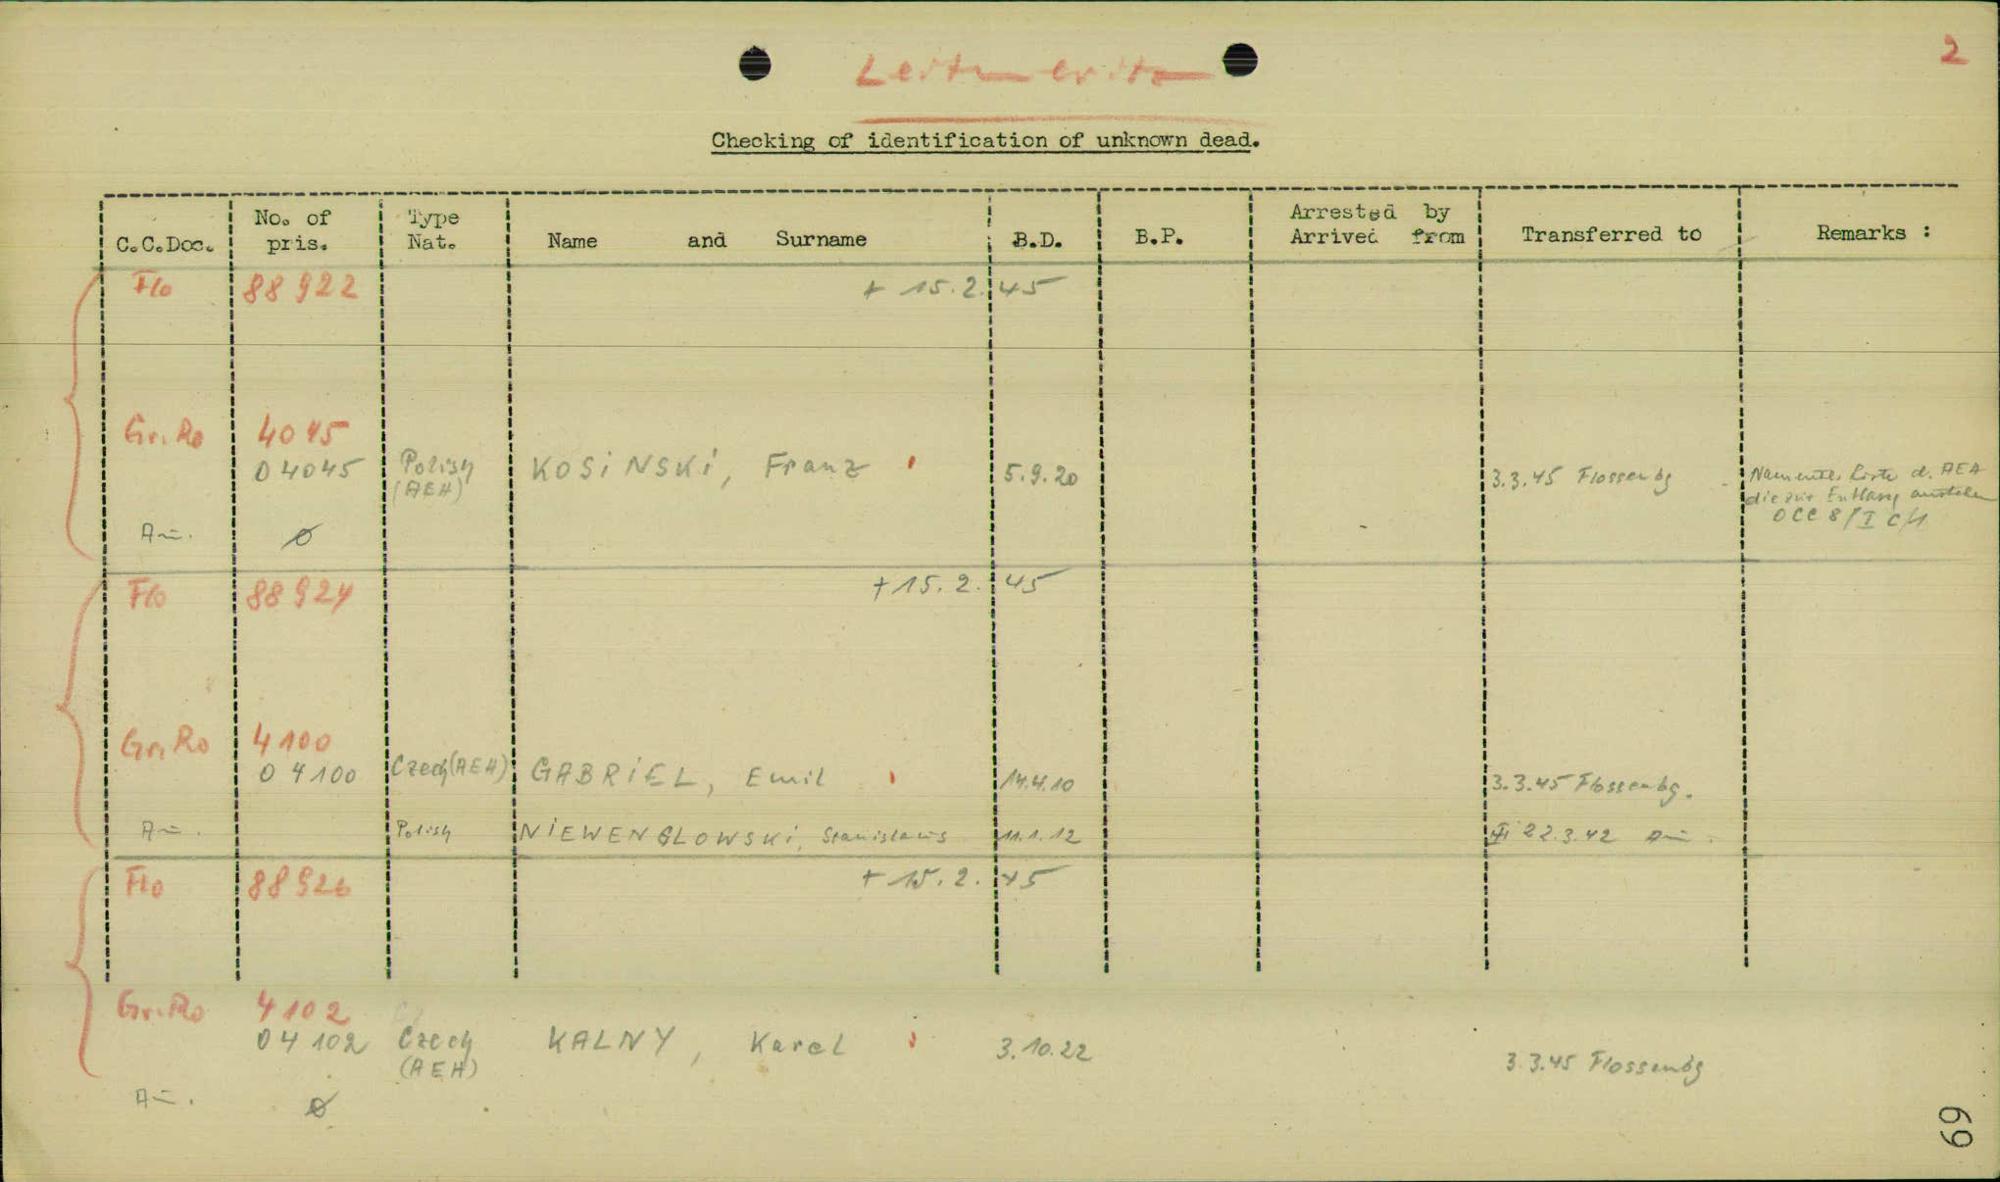 2
Leitmeritz
Checking of identification of unknown dead.
C.C.Doc. No. of pris. Type Nat. Name and Surname B.D. B.P. Arrested by Arrived from Transferred to Remarks :
Flo 88922 + 15.2.45
Gr.Ro 4045
04045 Polish (AEH) KOSiNSKi, Franz 5.9.20 3.3.45 Flossenbg
Namentl. Liste d. AEH
die zur Entlassg anstehen
OCC 8/I C/1
Au. ø
Flo 88924 + 15.2.45
Gr.Ro 4100
04100 Czech (AEH) GABRiEL, Emil 14.4.10 3.3.45 Flossenbg.
Au. Polish NiEWENGLOWSKi, Stanislaus 11.1.12 22.3.42 Au.
Flo 88926 + 15.2.45
Gr.Ro 4102
04102 Czech (AEH) KALNY, Karel 3.10.22 3.3.45 Flossenbg
Au. ø
69